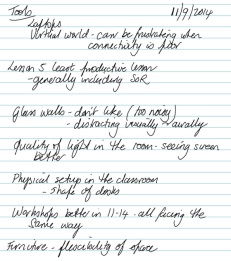 Tools 11/9/2014
Laptops
Virtual world - can be frustrating when
connectivity is poor
Lesson 5 least productive lesson
- generally including SOR
Glass walls - don't like (too noisy)
- distracting visually + aurally
Quality of light in the room - seeing screen
better
Physical setup in the classroom
- shape of desks
Workshops better in 11-14 - all facing the
same way
Furniture - flexibility of space